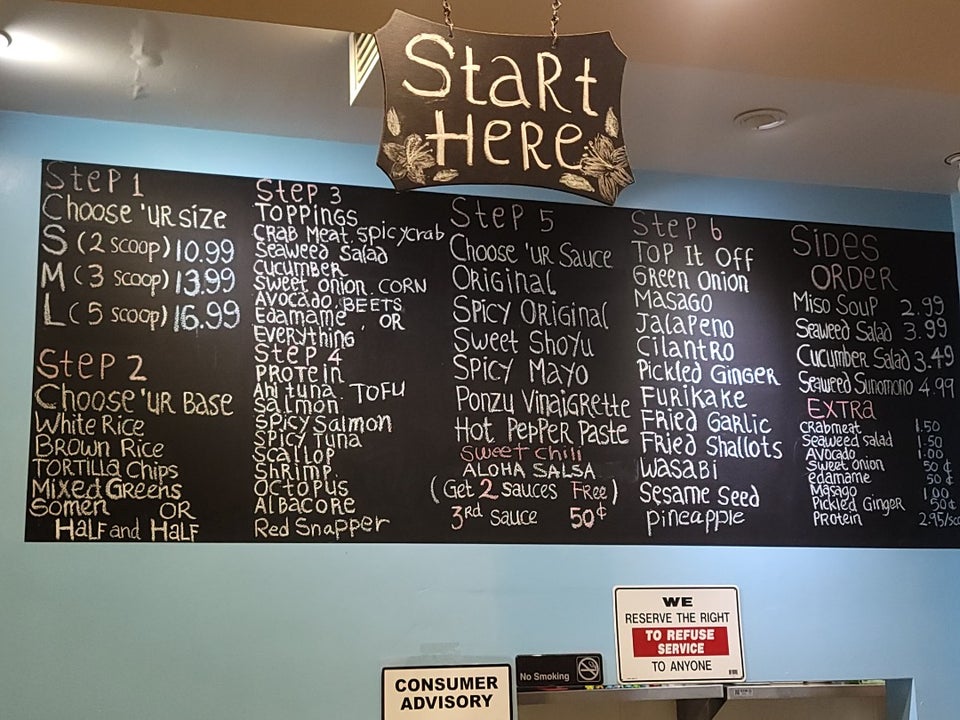 StaRt
HERE
SteP 1
Choose 'UR SIZE
S (2 SCOOP) 10.99
M (3 SCOOP) 13.99
L (5 SCOOP) 16.99
SteP 2
Choose 'UR BASE
White Rice
BROWN RICE
TORTILLA CHIPS
Mixed Greens
Somen OR
HALF and HALF
SteP 3
TOPPINGS
CRAB MEAT. SPICYCRAB
Seaweed Salad
CUCUMBER
Sweet onion. CORN
AVOCADO. BEETS
Edamame, OR
EVERYTHING
SteP 4
PROTEIN
Ahi tuna. TOFU
Salmon
SPICY Salmon
SPICY Tuna
SCALLOP
SHRIMP
OCTOPUS
ALBACORE
Red Snapper
SteP 5
Choose 'UR Sauce
ORIGINAL
SPICY ORIGINAL
Sweet Shoyu
SPICY MAYO
PONZU VINAIGRETTE
Hot PEPPER PASTE
Sweet Chili
ALOHA SALSA
(Get 2 Sauces Free)
3rd Sauce 50¢
SteP 6
TOP It OFF
GREEN ONION
MASAGO
JALAPENO
CILANTRO
Pickled GINGER
FURIKAKE
FRIED GARLIC
FRIED SHALLOTS
WASABI
SESAME SEED
pineapple
SIDES
ORDER
MISO SOUP 2.99
Seaweed Salad 3.99
CUCUMBER Salad 3.49
Seaweed Sunomono 4.99
EXTRA
CRABMEAT 1.50
Seaweed salad 1.50
AVOCADO 1.00
Sweet onion 50¢
edamame 50¢
Masago 1.00
Pickled Ginger 50¢
PROTEIN 2.95/sco
WE
RESERVE THE RIGHT
TO REFUSE
SERVICE
TO ANYONE
No Smoking
CONSUMER
ADVISORY